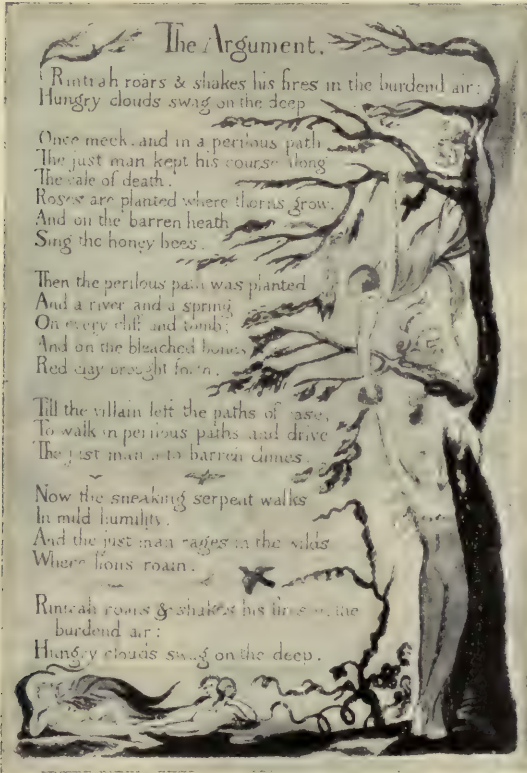 The Argument.
Rintrah roars & shakes his fires in the burdend air;
Hungry clouds swag on the deep
Once meek, and in a perilous path,
The just man kept his course along
The vale of death.
Roses are planted where thorns grow.
And on the barren heath
Sing the honey bees.
Then the perilous path was planted:
And a river and a spring
On every cliff and tomb;
And on the bleached bones
Red clay brought forth.
Till the villain left the paths of ease,
To walk in perilous paths, and drive
The just man into barren climes.
Now the sneaking serpent walks
In mild humility.
And the just man rages in the wilds
Where lions roam.
Rintrah roars & shakes his fires in the
burdend air;
Hungry clouds swag on the deep.